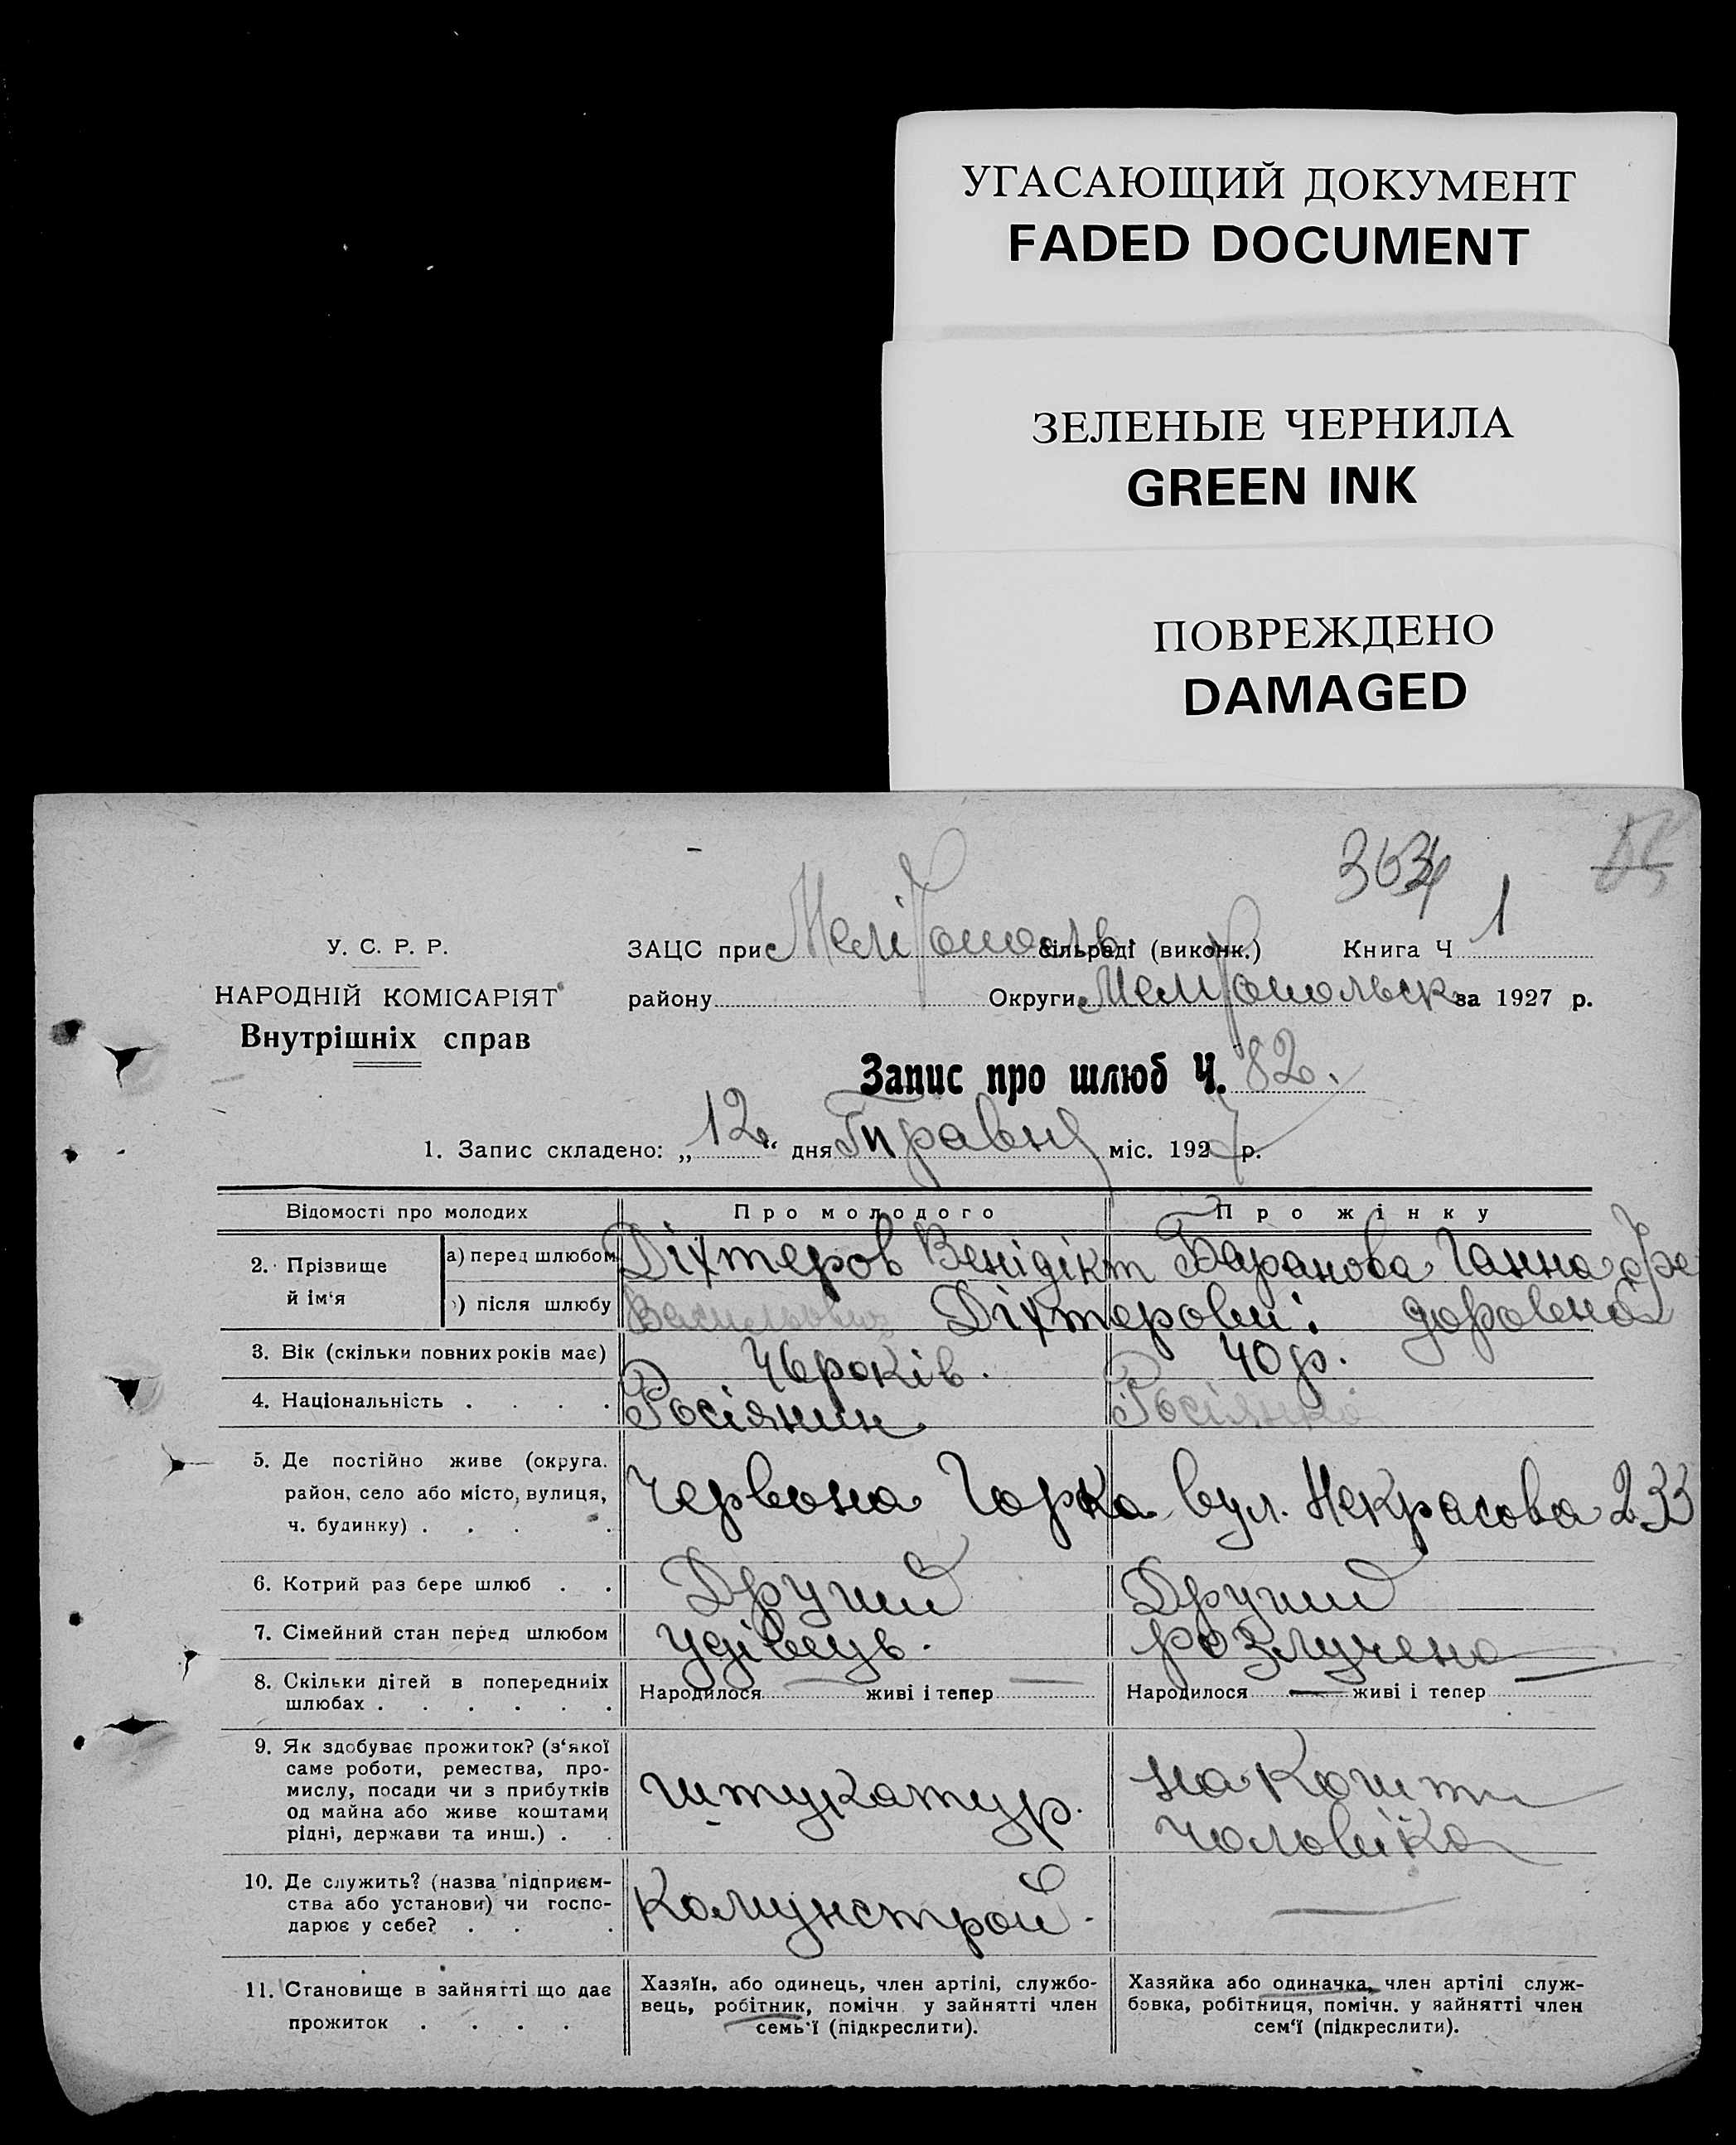 УГАСАЮЩИЙ ДОКУМЕНТ
FADED DOCUMENT
ЗЕЛЕНЫЕ ЧЕРНИЛА
GREEN INK
ПОВРЕЖДЕНО
DAMAGED
3634
У. С. Р. Р.
НАРОДНІЙ КОМІСАРІЯТ
Внутрішніх справ
ЗАЦС при Мелітополь сільраді (виконк.) Книга Ч 1
району Округи Мелітопольськ за 1927 р.
Запис про шлюб Ч. 82.
1. Запис складено: „ 12 “ дня Травня міс. 1927 р.
Відомості про молодих Про молодого Про жінку
2. Прізвище й ім‘я
а) перед шлюбом Діхтеров Венідікт Васильович Баранова Ганна Федоровна
б) після шлюбу Діхтерови:
3. Вік (скільки повних років має) 46 років. 40 р.
4. Національність . . . . Росіянин Росіянка
5. Де постійно живе (округа.
район, село або місто, вулиця,
ч. будинку) . . . .
Червона Горка вул. Некрасова 233
6. Котрий раз бере шлюб . . Другий Другий
7. Сімейний стан перед шлюбом удівець. розлучена
8. Скільки дітей в попередніх
шлюбах . . . . . .
Народилося — живі і тепер —
Народилося — живі і тепер —
9. Як здобуває прожиток? (з‘якої
саме роботи, ремества, про-
мислу, посади чи з прибутків
од майна або живе коштами
рідні, держави та инш.) . .
штукатур.
на кошти
чоловіка
10. Де служить? (назва підприєм-
ства або установи) чи госпо-
дарює у себе? . . .
Комунстрой. —
11. Становище в зайнятті що дає
прожиток . . . .
Хазяїн, або одинець, член артілі, службо-
вець, робітник, помічн. у зайнятті член
семь‘ї (підкреслити).
Хазяйка або одиначка, член артілі служ-
бовка, робітниця, помічн. у зайнятті член
сем‘ї (підкреслити).